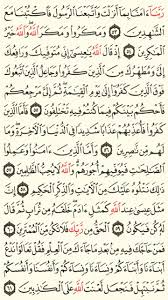 رَبَّنَآ ءَامَنَّا بِمَآ أَنزَلْتَ وَٱتَّبَعْنَا ٱلرَّسُولَ فَٱكْتُبْنَا مَعَ
ٱلشَّٰهِدِينَ ٥٣ وَمَكَرُوا۟ وَمَكَرَ ٱللَّهُ وَٱللَّهُ خَيْرُ
ٱلْمَٰكِرِينَ ٥٤ إِذْ قَالَ ٱللَّهُ يَٰعِيسَىٰٓ إِنِّى مُتَوَفِّيكَ وَرَافِعُكَ
إِلَىَّ وَمُطَهِّرُكَ مِنَ ٱلَّذِينَ كَفَرُوا۟ وَجَاعِلُ ٱلَّذِينَ ٱتَّبَعُوكَ
فَوْقَ ٱلَّذِينَ كَفَرُوٓا۟ إِلَىٰ يَوْمِ ٱلْقِيَٰمَةِ ثُمَّ إِلَىَّ مَرْجِعُكُمْ
فَأَحْكُمُ بَيْنَكُمْ فِيمَا كُنتُمْ فِيهِ تَخْتَلِفُونَ ٥٥ فَأَمَّا ٱلَّذِينَ
كَفَرُوا۟ فَأُعَذِّبُهُمْ عَذَابًا شَدِيدًا فِى ٱلدُّنْيَا وَٱلْءَاخِرَةِ وَمَا
لَهُم مِّن نَّٰصِرِينَ ٥٦ وَأَمَّا ٱلَّذِينَ ءَامَنُوا۟ وَعَمِلُوا۟
ٱلصَّٰلِحَٰتِ فَيُوَفِّيهِمْ أُجُورَهُمْ وَٱللَّهُ لَا يُحِبُّ ٱلظَّٰلِمِينَ ٥٧
ذَٰلِكَ نَتْلُوهُ عَلَيْكَ مِنَ ٱلْءَايَٰتِ وَٱلذِّكْرِ ٱلْحَكِيمِ ٥٨ إِنَّ
مَثَلَ عِيسَىٰ عِندَ ٱللَّهِ كَمَثَلِ ءَادَمَ خَلَقَهُۥ مِن تُرَابٍ ثُمَّ قَالَ
لَهُۥ كُن فَيَكُونُ ٥٩ ٱلْحَقُّ مِن رَّبِّكَ فَلَا تَكُن مِّنَ ٱلْمُمْتَرِينَ ٦٠
فَمَنْ حَآجَّكَ فِيهِ مِنۢ بَعْدِ مَا جَآءَكَ مِنَ ٱلْعِلْمِ فَقُلْ تَعَالَوْا۟
نَدْعُ أَبْنَآءَنَا وَأَبْنَآءَكُمْ وَنِسَآءَنَا وَنِسَآءَكُمْ وَأَنفُسَنَا وَأَنفُسَكُمْ
ثُمَّ نَبْتَهِلْ فَنَجْعَل لَّعْنَتَ ٱللَّهِ عَلَى ٱلْكَٰذِبِينَ ٦١